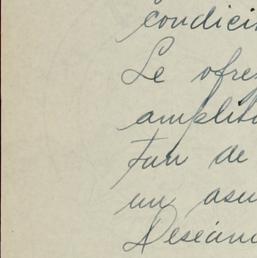 condici
Le ofre
amplit
tan de
un asu
Deseán